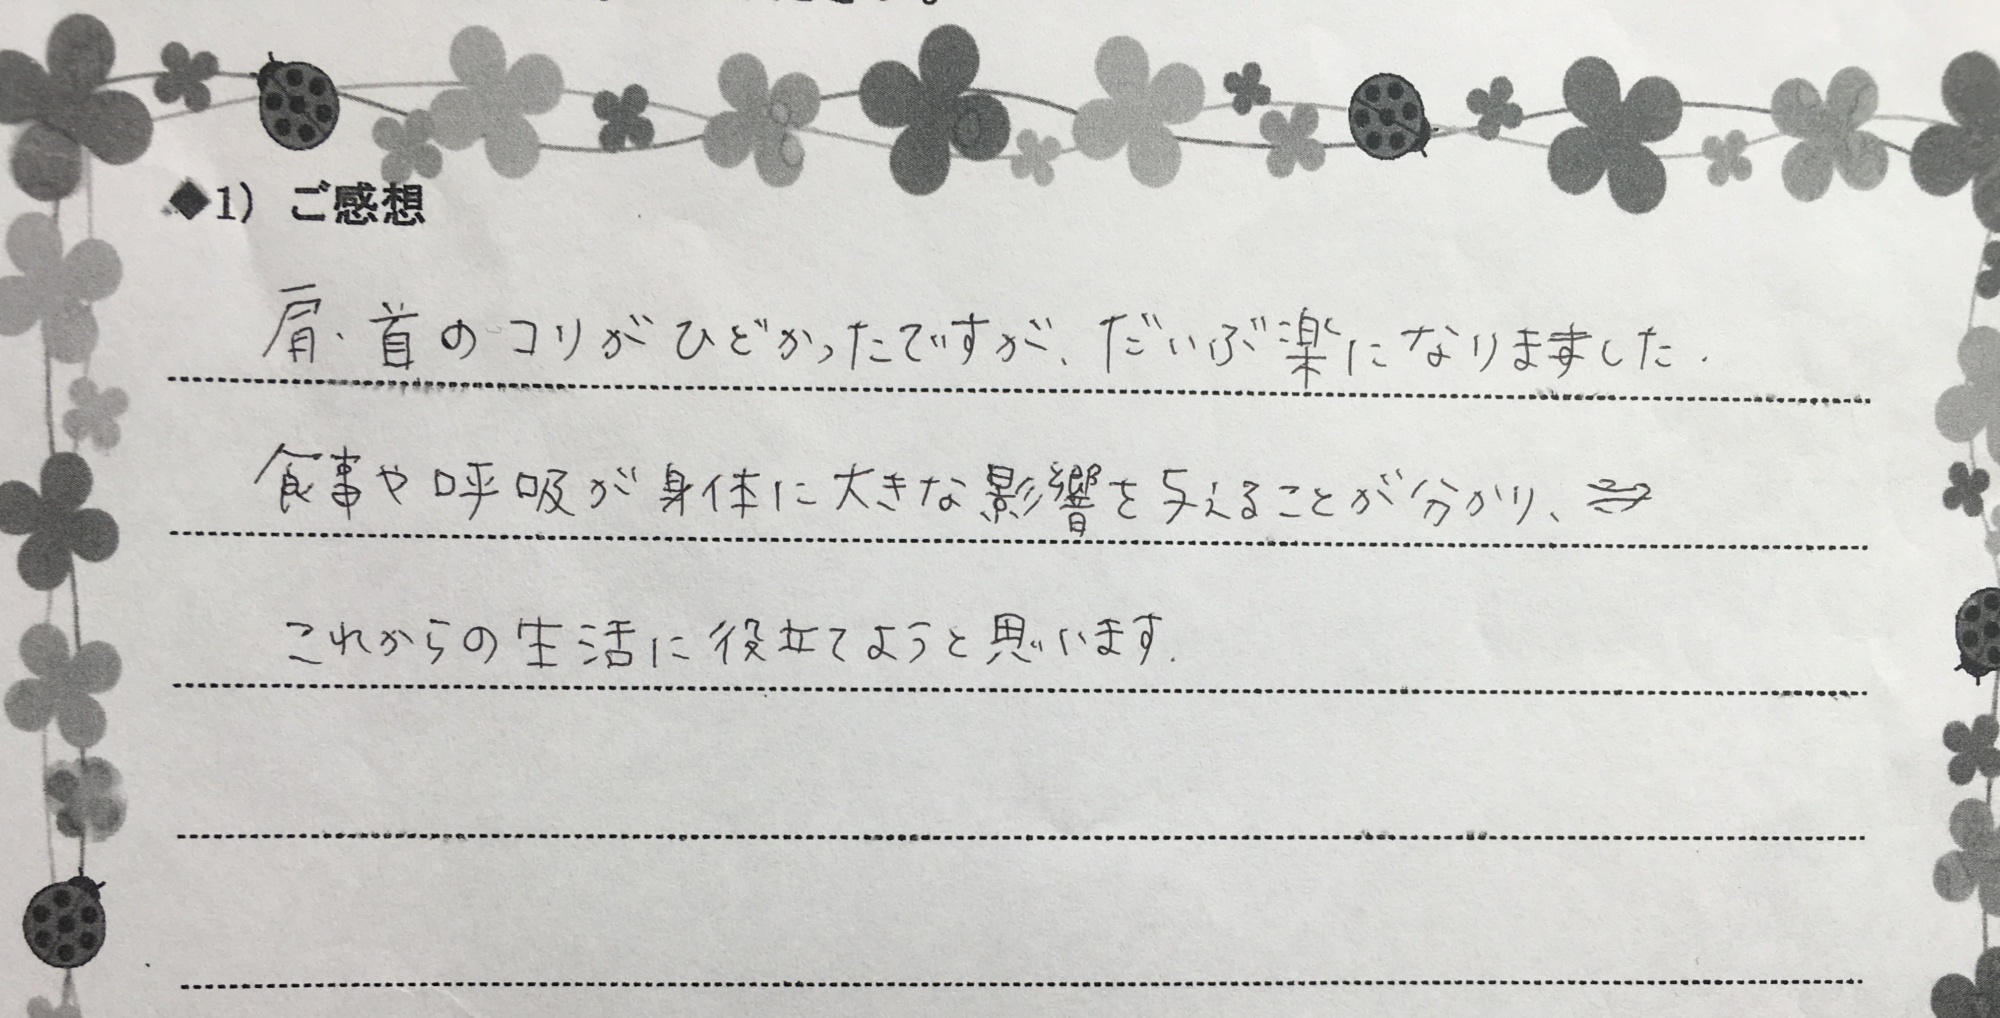 ◆1) ご感想
肩・首のコリがひどかったですが、だいぶ楽になりました.
食事や呼吸が身体に大きな影響を与えることが分かり、
これからの生活に役立てようと思います.